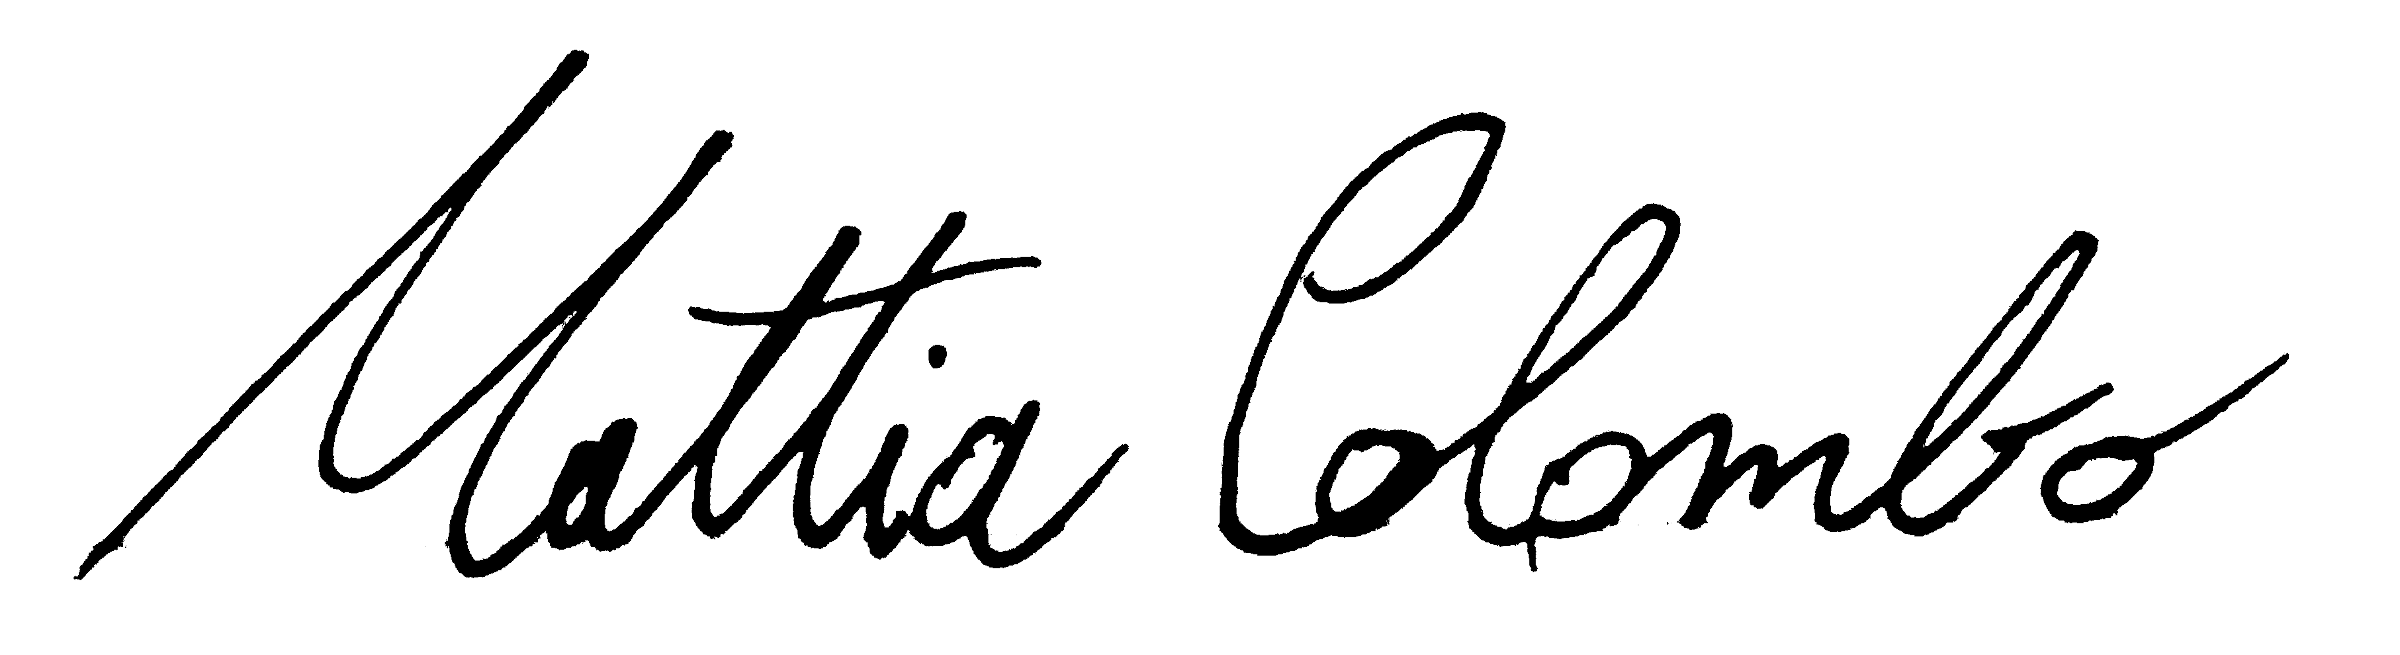 Mattia Colombo